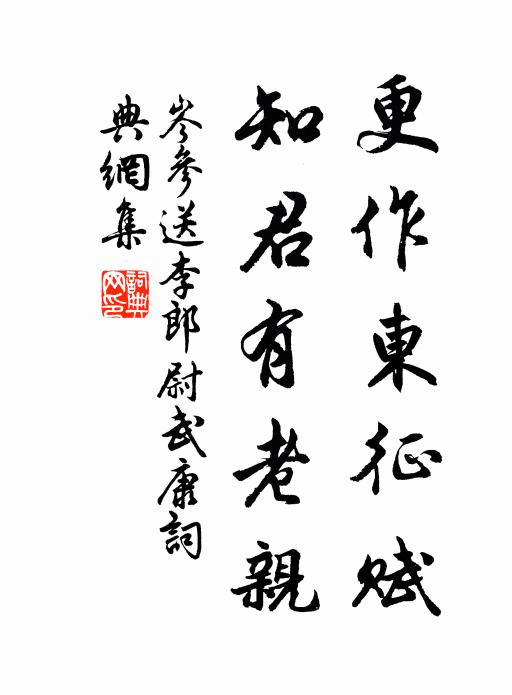 更作東征賦
知君有老親
岑參送李郎尉武康詞
典網集
詞典網印